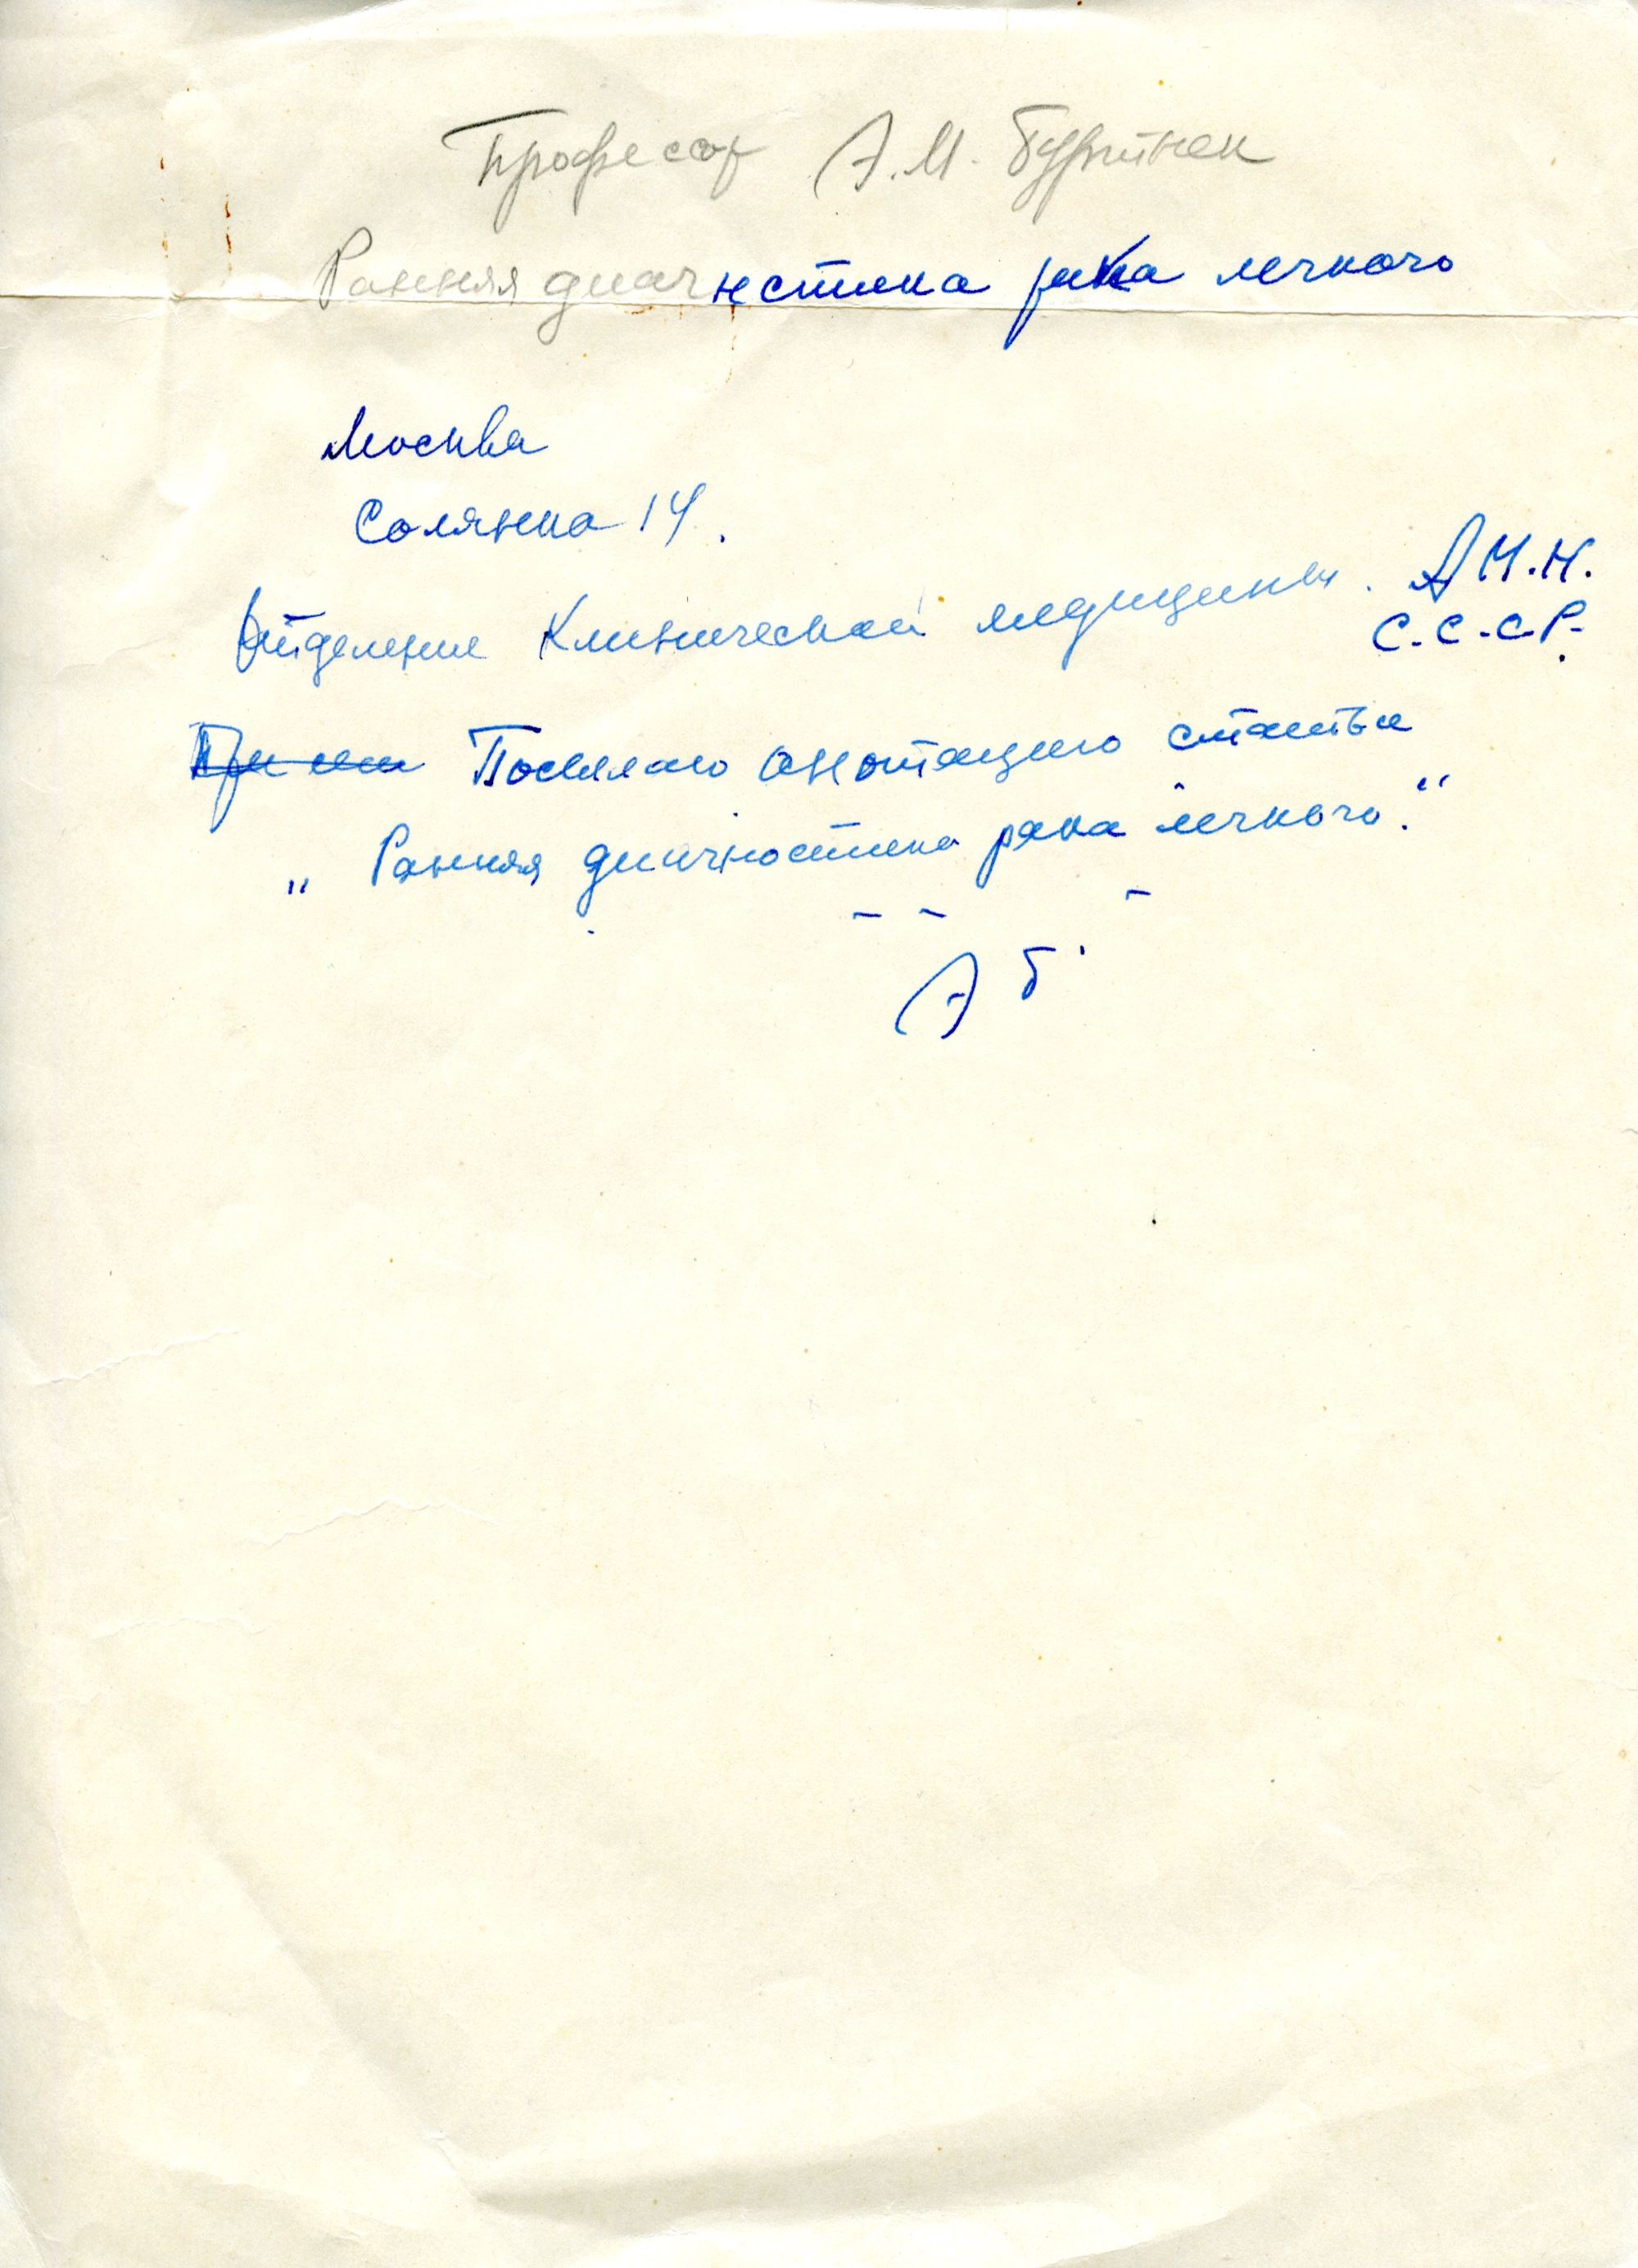 Профессор А.М. Буртнек
Ранняя диагнстика рака легкого
Москва
Солянка 14.
Отделение Клинической медицины. А М.Н.
С.С.С.Р.
Посылаю анотацию статьи
„ Ранняя диагностика рака легкого."
А Б.